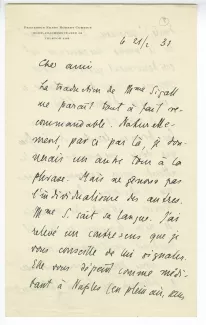 6 21/2 31
Cher ami
La traduction de Mme Sigall
me paraît tout à fait re-
commandable. Naturelle-
ment, par ci par là, je don-
nerais un autre ton à la
phrase. Mais ne gênons pas
l'individualisme des autres.
Mme S. sait sa langue. J'ai
relevé un contresens que je
vous conseille de lui signaler.
Elle vous dépeint comme médi-
tant à Naples (en plein air,